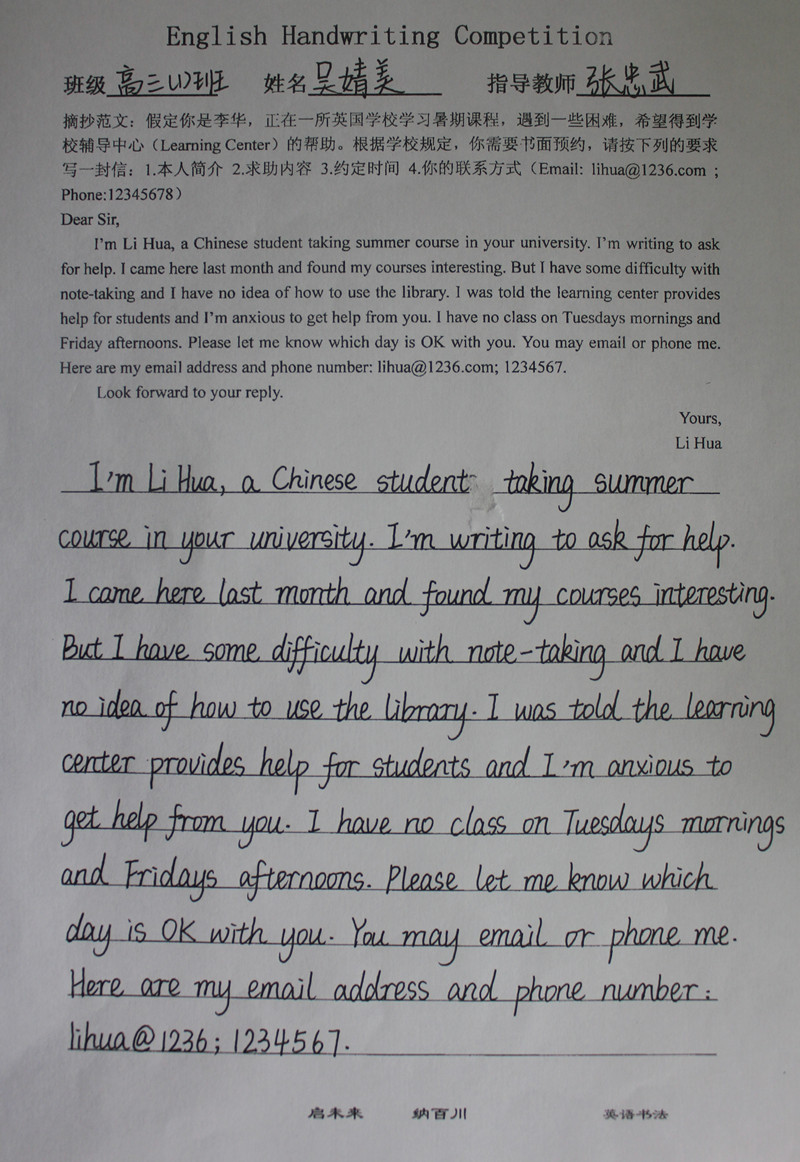 English Handwriting Competition
班级 高三(1)班 姓名 吴婧美 指导教师 张忠武
摘抄范文：假定你是李华，正在一所英国学校学习暑期课程，遇到一些困难，希望得到学
校辅导中心（Learning Center）的帮助。根据学校规定，你需要书面预约，请按下列的要求
写一封信：1.本人简介 2.求助内容 3.约定时间 4.你的联系方式（Email: lihua@1236.com ;
Phone:12345678）
Dear Sir,
I'm Li Hua, a Chinese student taking summer course in your university. I'm writing to ask
for help. I came here last month and found my courses interesting. But I have some difficulty with
note-taking and I have no idea of how to use the library. I was told the learning center provides
help for students and I'm anxious to get help from you. I have no class on Tuesdays mornings and
Friday afternoons. Please let me know which day is OK with you. You may email or phone me.
Here are my email address and phone number: lihua@1236.com; 1234567.
Look forward to your reply.
Yours,
Li Hua
I'm Li Hua, a Chinese student taking summer
course in your university. I'm writing to ask for help.
I came here last month and found my courses interesting.
But I have some difficulty with note-taking and I have
no idea of how to use the library. I was told the learning
center provides help for students and I'm anxious to
get help from you. I have no class on Tuesdays mornings
and Fridays afternoons. Please let me know which
day is OK with you. You may email or phone me.
Here are my email address and phone number:
lihua@1236; 1234567.
启未来 纳百川 英语书法